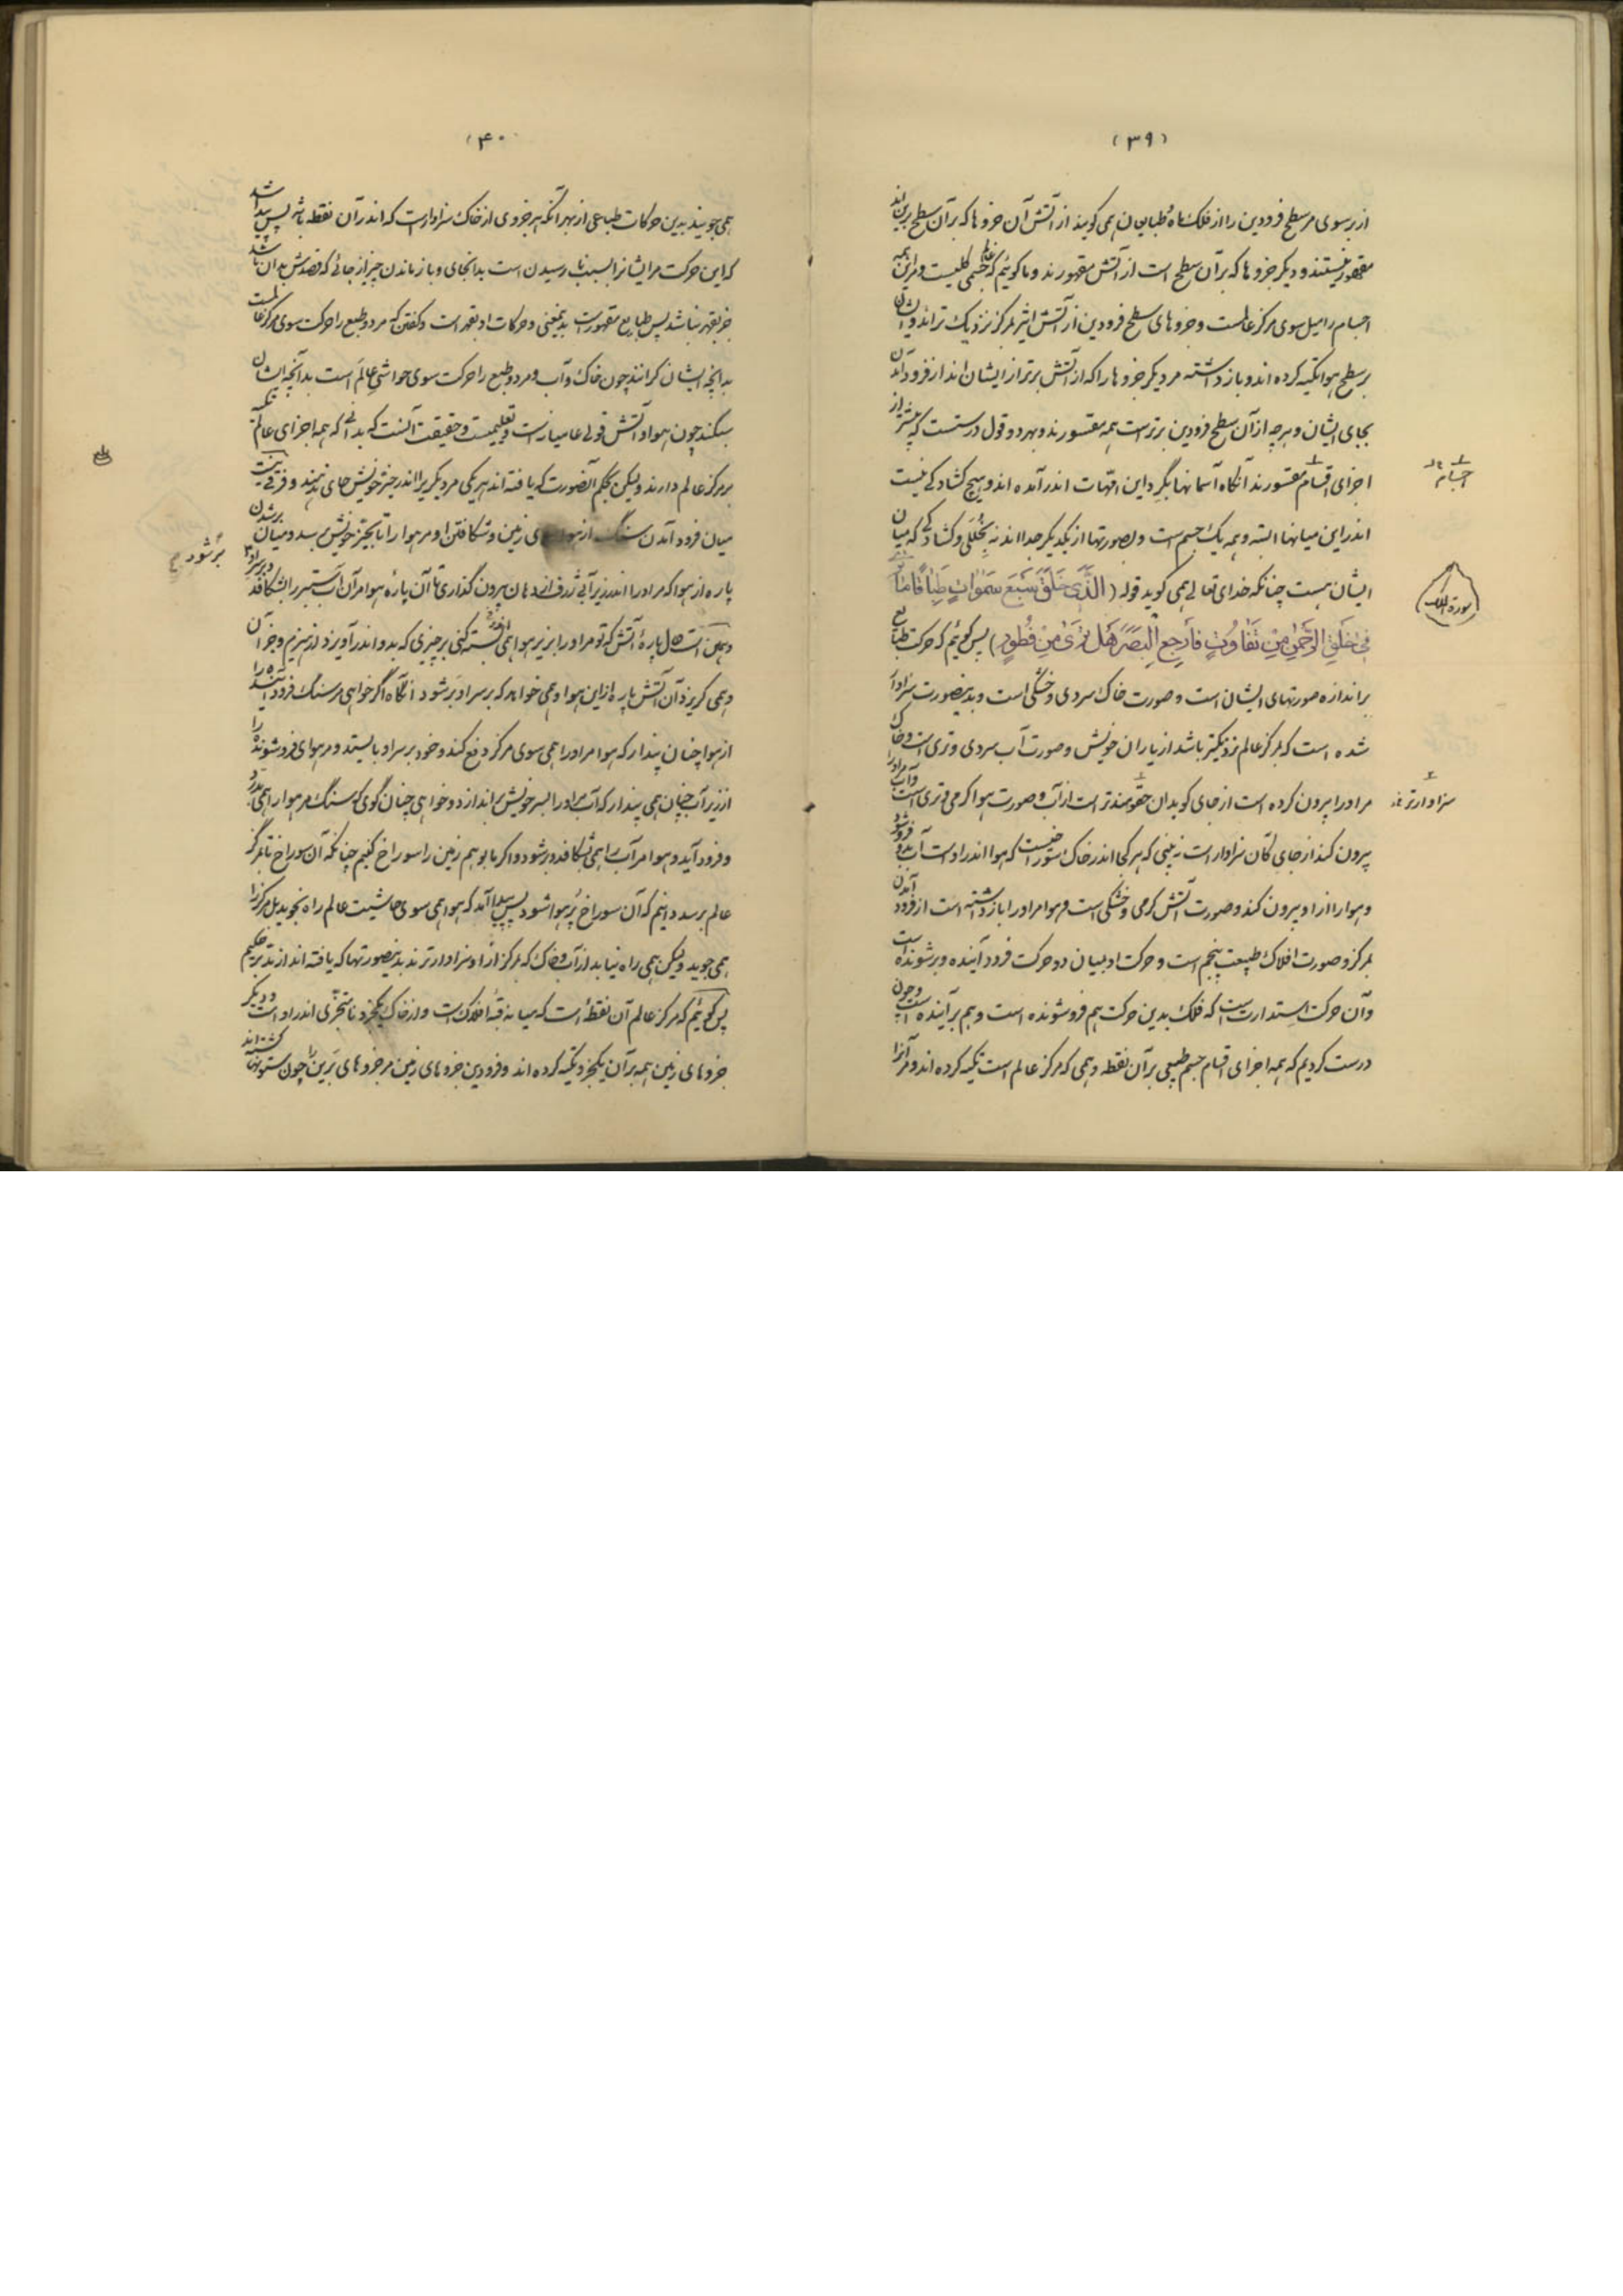 (۳۹)
از بر سوی مر سطح فرودین را از فلک ماه طبایعیان همی گویند از آتش آن جزوها که بر آن سطح برین‌اند
مقهور نیستند و دیگر جزوها که بر آن سطح است از آتش مقهورند و ما گوئیم که عالم جسمی کلیست و مر این همه
اجسام را میل سوی مرکز عالمست و جزوهای سطح فرودین از آتش اثیر بمرکز نزدیک تر اند و ایشان
بر سطح هوا تکیه کرده اند و باز داشته مر دیگر جزوها را که از آتش برتر از ایشان اند از فرود آمدن
بجای ایشان و هر چه از آن سطح فرودین برترست همه مقسورند و بهر دو قول درستست که بیشتر از
اجزای اقسام مقسورند آنگاه آسمانها بگرد این امهات اندر آمده اند و هیچ گشادگی نیست
اندر این میانها البته و همه یک جسم است و بصورتها از یکدیگر جدا اند نه بخللی و گشادگی که میان
ایشان هست چنانکه خدای تعالی همی گوید قوله (الَّذی خَلَقَ سَبْعَ سَمٰواتٍ طِباقًا ما تَری
فی خَلْقِ الرَّحْمٰنِ مِنْ تَفاوُتٍ فَارْجِعِ الْبَصَرَ هَلْ تَری مِنْ فُطُورٍ) پس گوئیم که حرکت طبایع
بر اندازه صورتهای ایشان است و صورت خاک سردی و خشکی است و بدین صورت سزاوار
شده است که بمرکز عالم نزدیکتر باشد از یاران خویش و صورت آب سردی و تری است و خاک
مر اورا بیرون کرده است از جای که بدان حقومندتر است از آب و صورت هوا گرمی و تری است و آب مر اورا
بیرون کند از جای کان سزاوار است نه بینی که هر کجا اندر خاک سوراخیست که هوا اندر اوست آب بدو فرو شود
و هوا را از او بیرون کند و صورت آتش گرمی و خشکی است و هوا مر اورا باز داشته است از فرود آمدن
بمرکز و صورت افلاک طبیعت پنجم است و حرکت او بمیان دو حرکت فرود آینده و بر شونده است
و آن حرکت استدارت است که فلک بدین حرکت هم فرو شونده است و هم بر آینده است و چون
درست کردیم که همه اجزای اقسام جسم طبیعی بر آن نقطه وهمی که مرکز عالم است تکیه کرده اند و مر آنرا
اجسام
سورة الملک
سزاوارتر
(۴۰)
همی جویند بدین حرکات طباعی از بهر آنکه هر جزوی از خاک سزاوارست که اندر آن نقطه باشد پس پیدا شد
که این حرکت مر ایشانرا بسبب نا رسیدن است بدانجای و باز ماندن چیز از جائی که قصدش بدان باشد
جز بقهر نباشد پس طبایع مقهورست بدینمعنی و حرکات او بقهر است و گفتن که مر دو طبع را حرکت سوی مرکز عالمست
بدانچه ایشان گرانند چون خاک و آب و مر دو طبع را حرکت سوی حواشی عالم است بدانچه ایشان
سبکند چون هوا و آتش قولی عامیانه است و تعلیمیست و حقیقت آنست که بدانی که همه اجزای عالم تکیه
بر مرکز عالم دارند ولیکن بحکم آنصورت که یافته اند هر یکی مر دیگریرا اندر حیز خویش جای ندهند و فرقی نیست
میان فرود آمدن سنگ از هوا سوی زمین و شکافتن او مر هوا را تا بحیز خویش برسد و میان بر شدن
پاره از هوا که مر اورا اندر زیر آبی ژرف از دهان بیرون گذاری تا آن پارۀ هوا مر آن آب ستبر را بشکافد و بر سر او
و همین است حال پارۀ آتش که تو مر اورا بزیر هوا همی بسته کنی بر چیزی که بدو اندر آویزد از هیزم و جز آن
و همی گریزد آن آتش پاره از این هوا و همی خواهد که بر سر او بر شود آنگاه اگر خواهی مر سنگ فرود آینده را
از هوا چنان پندار که هوا مر اورا همی سوی مرکز دفع کند و خود بر سر او بایستد و مر هوای فرو شونده را
از زیر آب چنان همی پندار که آب مر اورا بسر خویش بر اندازد و خواهی چنان گوی که سنگ مر هوا را همی بدرد
و فرود آید و هوا مر آب را همی بشکافد و بر شود و اگر ما بوهم زمین را سوراخ کنیم چنانکه آن سوراخ تا بمرکز
عالم برسد دانیم که آن سوراخ پر هوا شود پس پیدا آمد که هوا همی سوی حاشیت عالم راه نجوید بل مرکز را
همی جوید ولیکن همی راه نیابد از آب و خاک که بمرکز از او سزاوارترند بدین صورتها که یافته اند از تدبیر حکیم
پس گوئیم که مرکز عالم آن نقطه است که میانۀ قبۀ افلاک است و از خاک یکجزو نا متجزی اندر اوست و دیگر
جزوهای زمین همه بر آن یکجزو تکیه کرده اند و فرودین جزوهای زمین مر جزوهای برین را چون ستونها گشته اند
بر شود